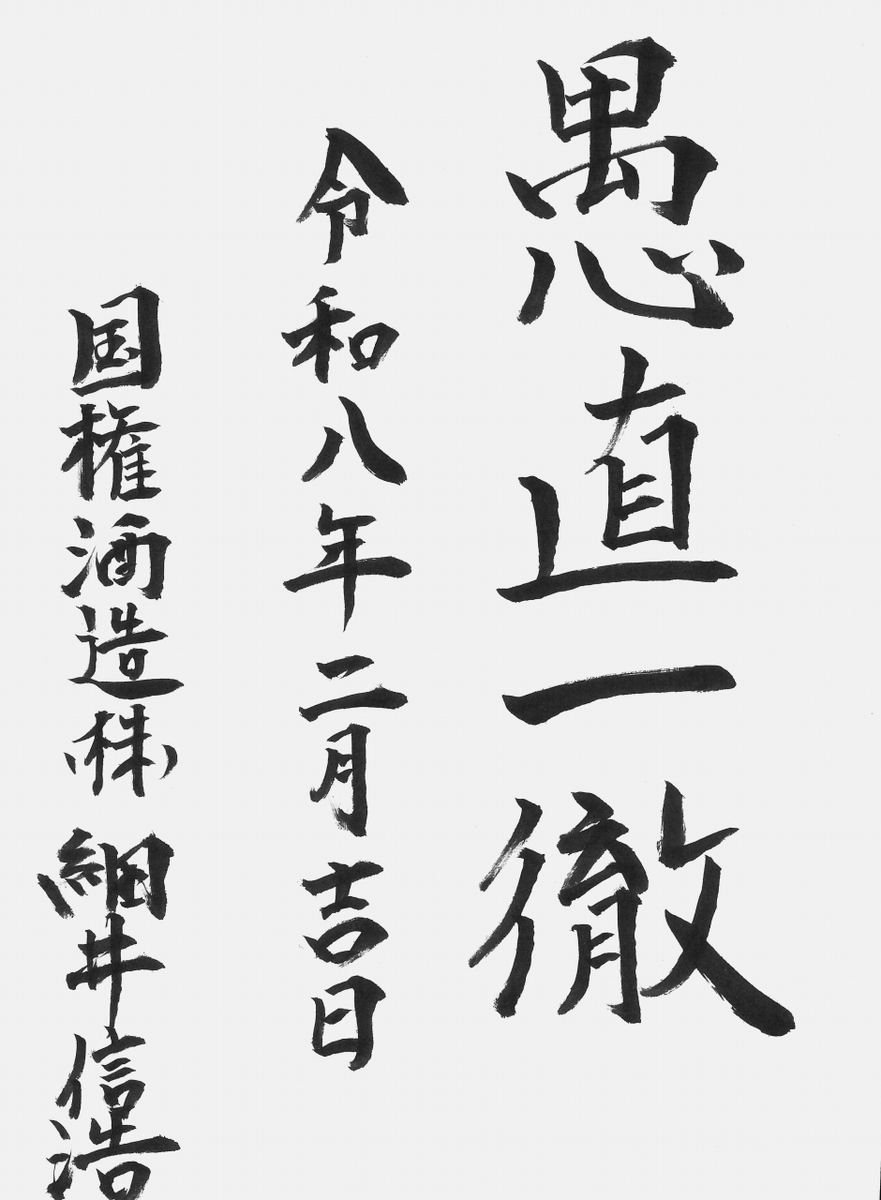 愚直一徹
令和八年二月吉日
国権酒造(株) 細井信浩